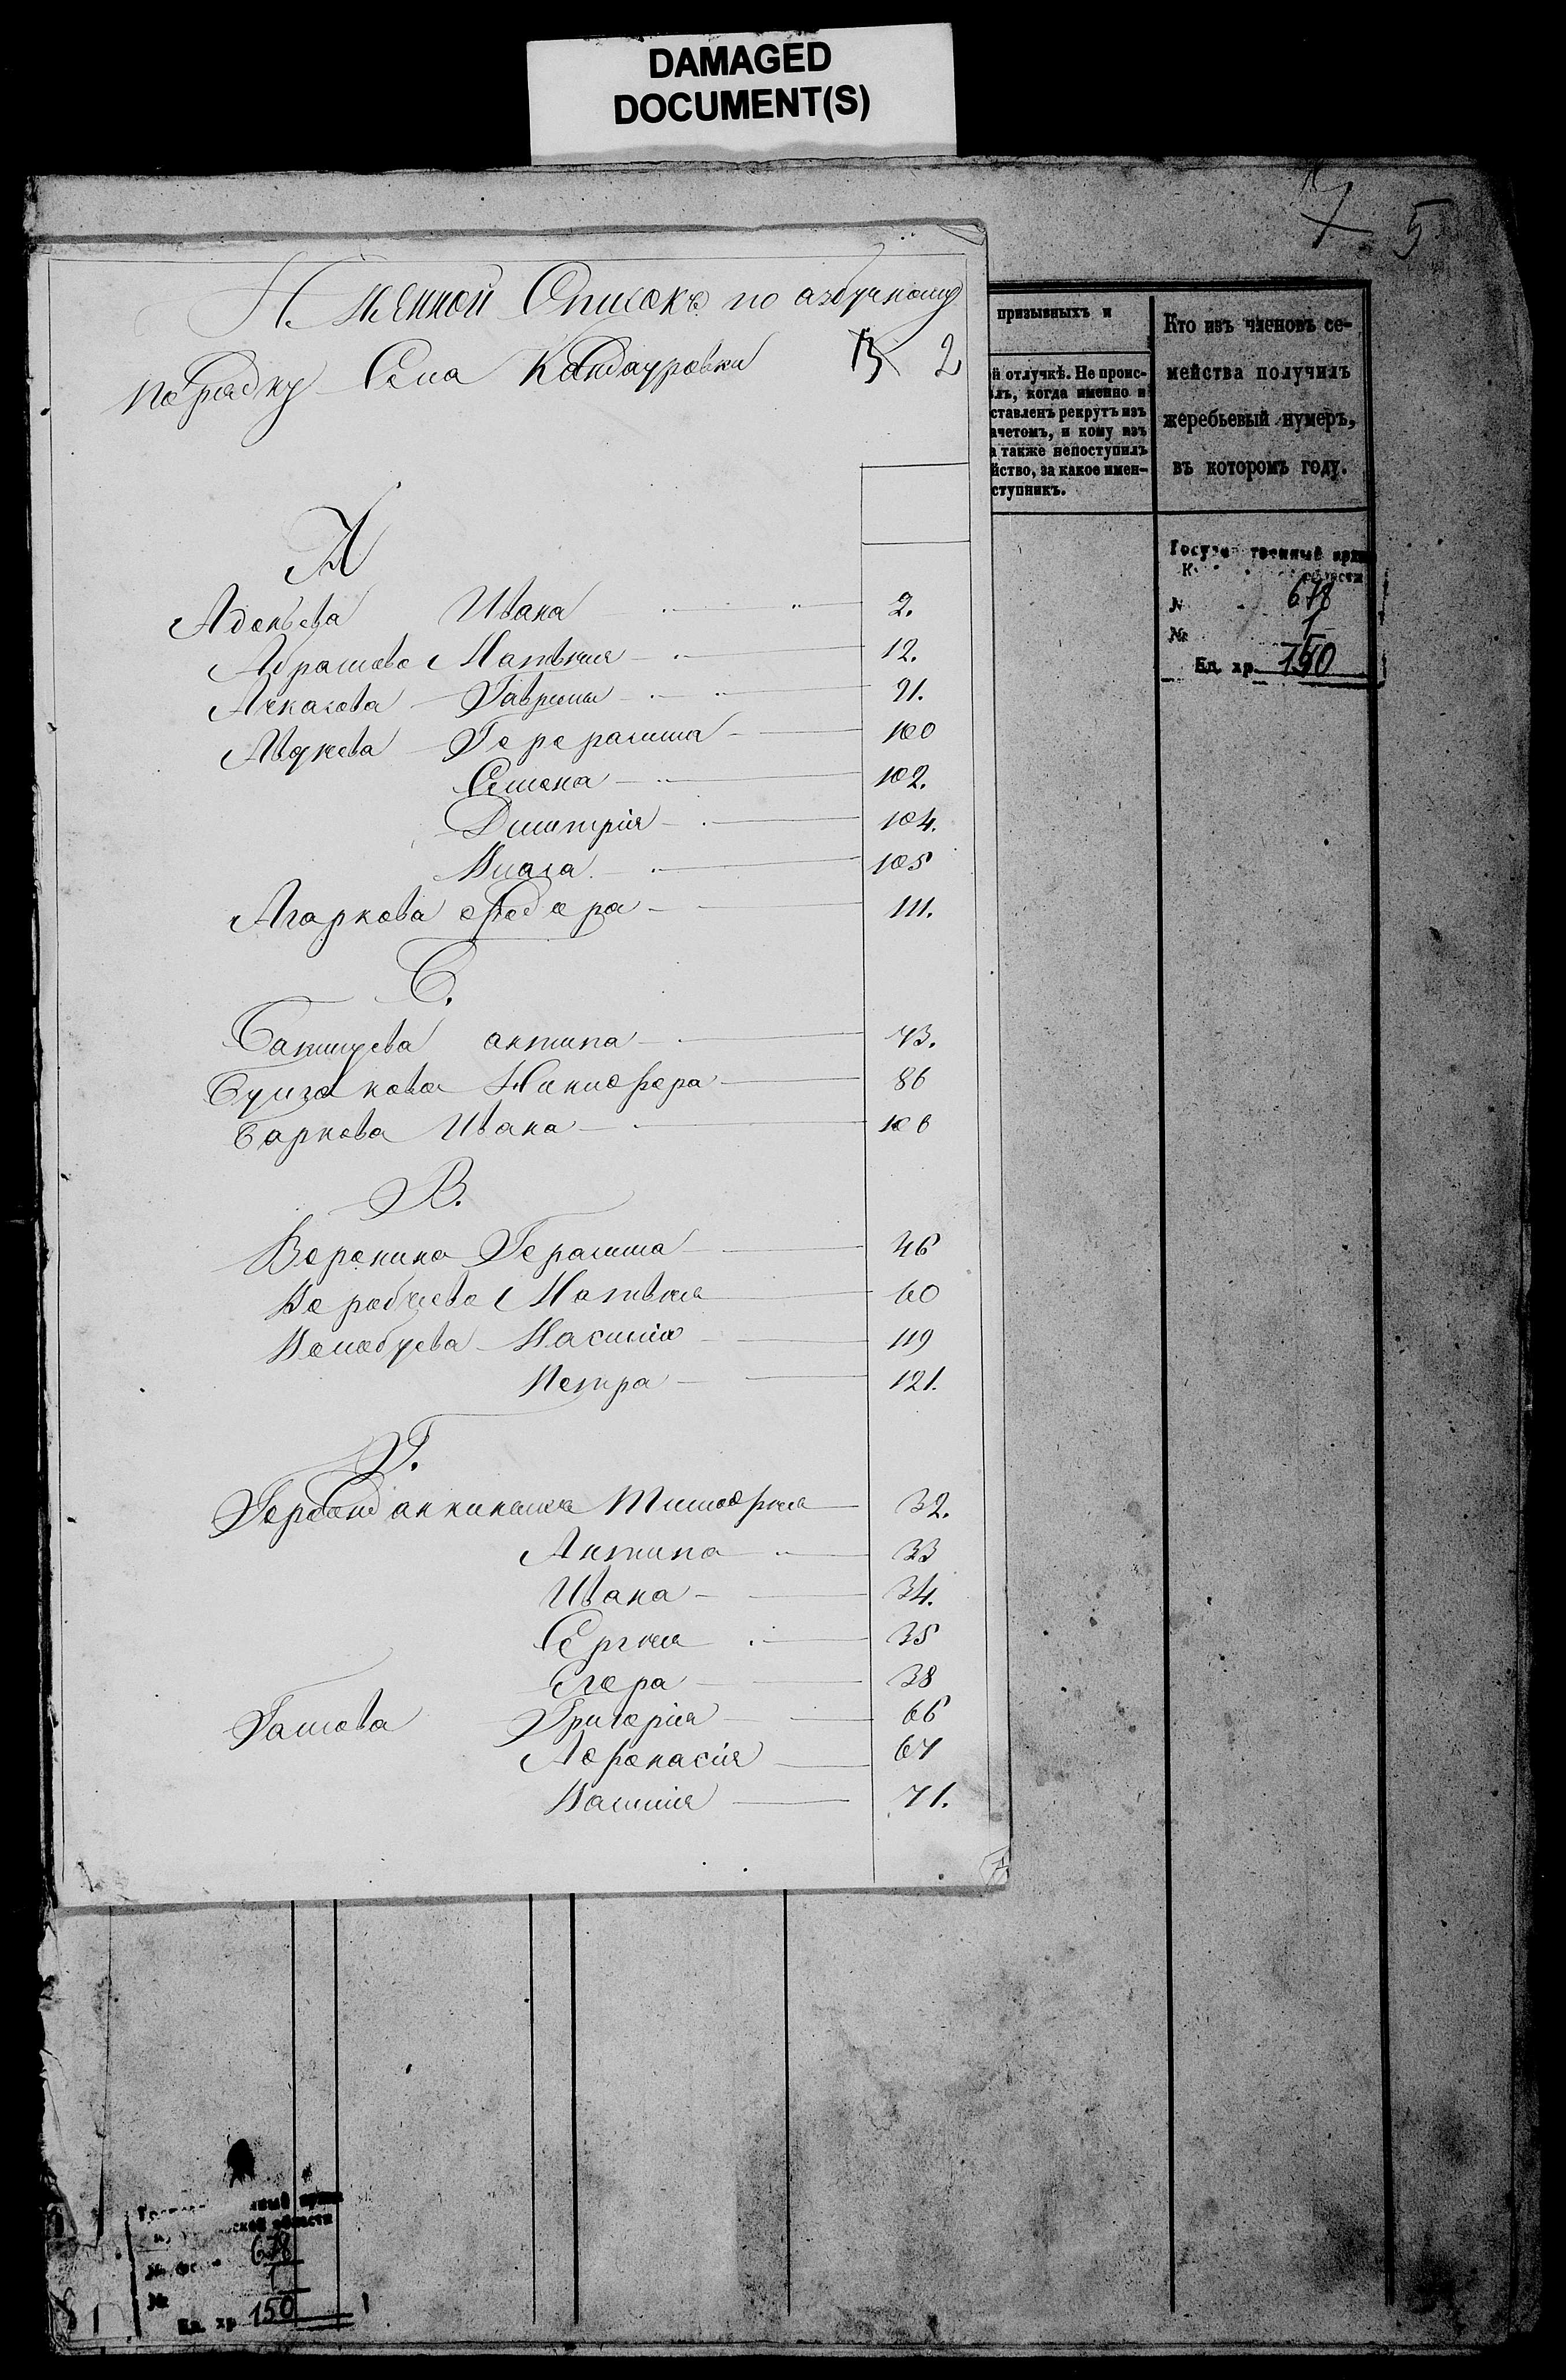 DAMAGED
DOCUMENT(S)
5
Именной Списокъ по азбучному
порядку Села Кандауровки
2
А
Ивана 2.
Абрашова Матвѣя 12.
Гаврила 21.
Авдѣева Герасима 100
Семена 102.
Дмитрія 104.
Власа 105
Агаркова Федора 111.
Б.
Батищева антипа 73.
Никифора 86
Баркова Ивана 106
В.
Воронина Герасима 46
Воробьева Матвѣя 60
Василія 119
Петра 121.
Г.
Тимофѣя 32.
Антипа 33
Ивана 34.
Сергѣя 35
Егора 38
Григорія 66
Афонасія 67
Василія 71.
призывныхъ и
й отлучкѣ. Не проис-
лъ, когда именно и
ставленъ рекрутъ изъ
ачетомъ, и кому изъ
а также непоступилъ
йство, за какое имен-
ступникъ.
Кто изъ членовъ се-
мейства получилъ
жеребьевый нумеръ,
въ которомъ году.
678
1
Ед. хр. 150
области
678
1
№
Ед. хр. 150